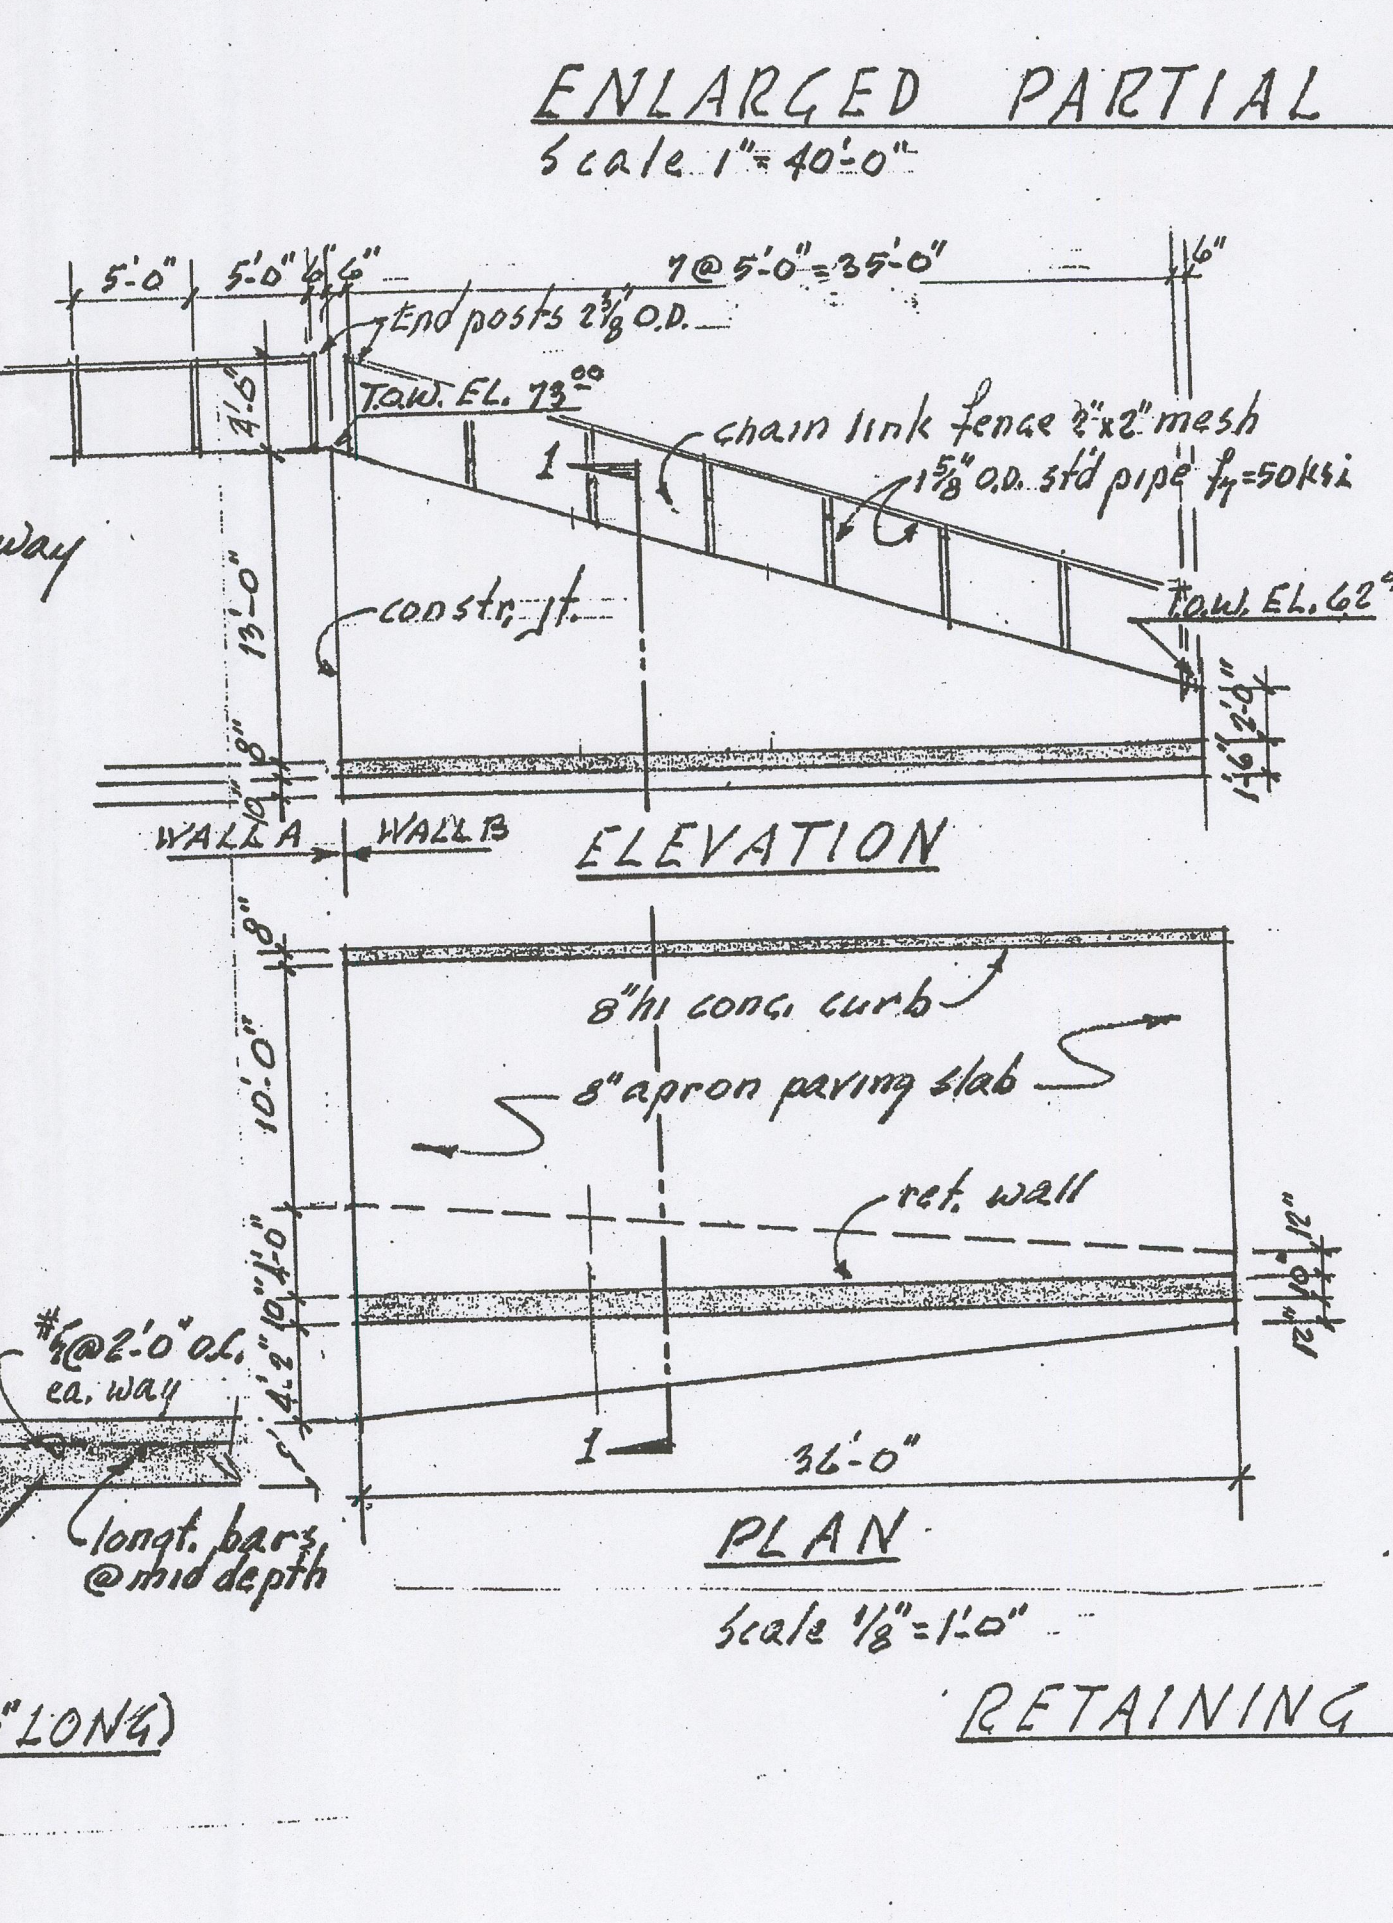 ENLARGED PARTIAL
Scale 1"= 40'-0"
5'-0" 5'-0" 6" 6" 7 @ 5'-0" = 35'-0" 6"
End posts 2 3/8" O.D.
T.O.W. EL. 73 00
4'-0"
chain link fence 2"x2" mesh
1
1 5/8" O.D. std pipe fy=50ksi
way
13'-0"
constr. jt.
T.O.W. EL. 62
2'-0"
8"
1'-6"
10"
WALL A WALL B
ELEVATION
8"
8" hi conc. curb
10'-0"
8" apron paving slab
ret. wall
4'-0"
12"
10"
10"
12"
@ 2'-0" o.c.
ea. way
4'-2"
1
36'-0"
longt. bars
@ mid depth
PLAN
Scale 1/8"=1'-0"
"LONG)
RETAINING